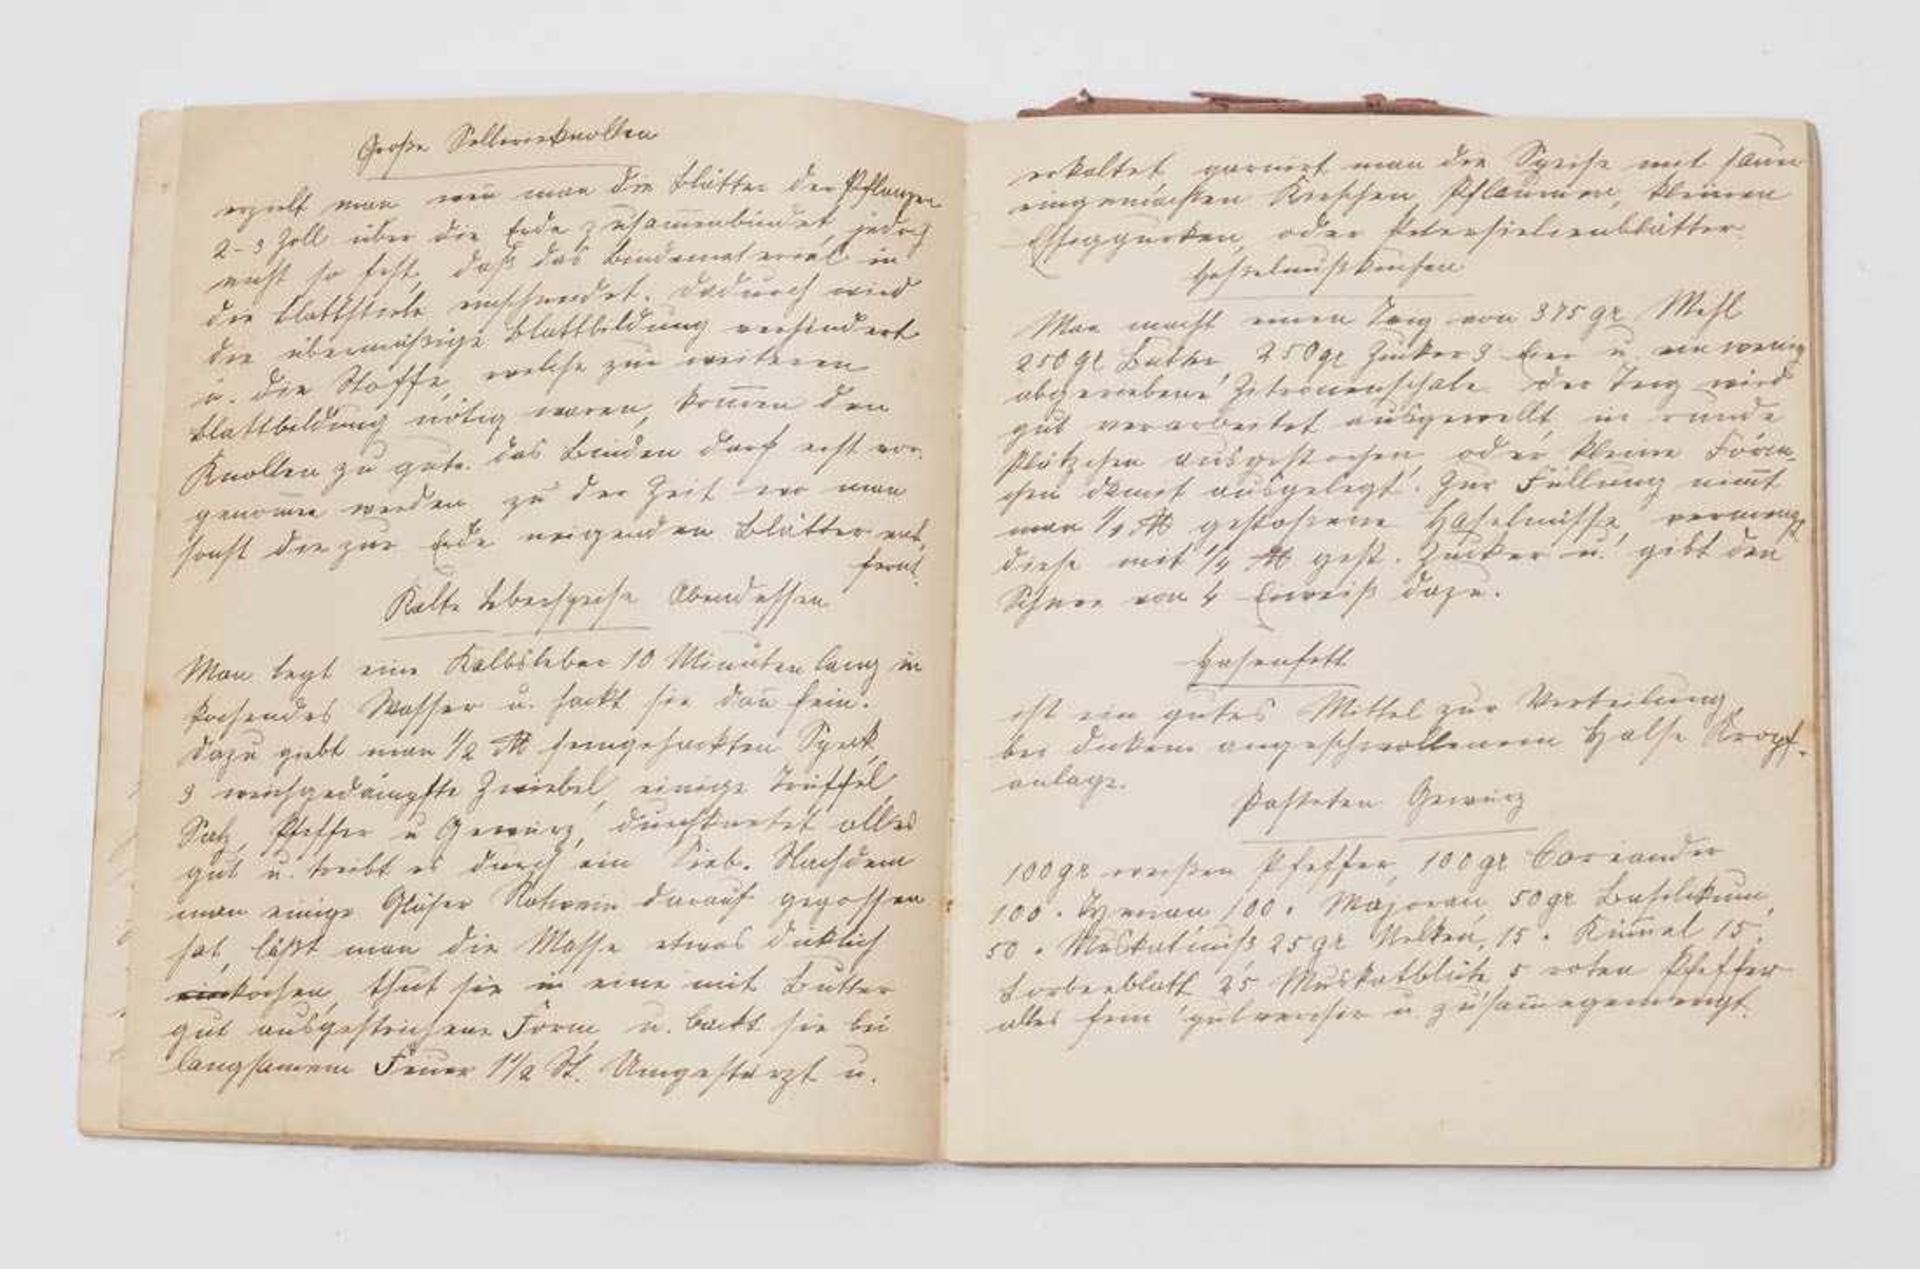 Große Sellerieknollen
erzielt man wen̄ man die Blätter der Pflanzen
2-3 Zoll über der Erde zusam̄enbindet, jedoch
nicht so fest, daß das Bindematerial in
die Blattstiele einschneidet. Dadurch wird
die übermäßige Blattbildung verhindert
u. die Stoffe, welche zur weiteren
Blattbildung nötig waren, kom̄en den
Knollen zu gute. Das Binden darf erst vor-
genom̄en werden zu der Zeit wo man
sonst die zur Erde neigenden Blätter ent-
fernt.
Kalte Leberspeise Abendessen
Man legt eine Kalbsleber 10 Minuten lang in
kochendes Wasser u. hackt sie dan̄ fein.
Dazu giebt man 1/2 ℔ feingehackten Speck,
3 weichgedämpfte Zwiebel, einige Trüffel,
Salz, Pfeffer u Gewürz, durchknetet alles
gut u. treibt es durch ein Sieb. Nachdem
man einige Gläser Rotwein darauf gegossen
hat, läßt man die Masse etwas dicklich
einkochen, thut sie in eine mit Butter
gut ausgestrichene Form, u. backt sie bei
langsamem Feuer 1 1/2 St. Umgestürzt u.
erkaltet garniert man die Speise mit sauer
eingemachten Kirschen, Pflaumen, kleinen
Essiggurken, oder Petersielienblätter.
Haselnußkuchen
Man macht einen Teig von 375 gr Mehl
250 gr Butter, 250 gr Zucker 3 Eier u. ein wenig
abgeriebene Zitronenschale. Der Teig wird
gut verarbeitet ausgewellt, in runde
Plätzchen ausgestochen, oder kleine Förm-
chen damit ausgelegt. Zur Füllung nim̄t
man 1/4 ℔ gestoßene Haselnüsse, vermengt
diese mit 1/4 ℔ gest. Zucker u. gibt den
Schnee von 4 Eiweiß dazu.
Hasenfett
ist ein gutes Mittel zur Verteilung
bei dickem angeschwollenem Halse Kropf-
anlage.
Pasteten Gewürz
100 gr weißen Pfeffer, 100 gr Coriander
100 " Thymian 100 " Majoran, 50 gr Basilikum,
50 " Muskatnuß 25 gr Nelken, 15 " Küm̄el 15 "
Lorbeerblatt 25 Muskatblüte 5 roten Pfeffer
alles fein pulverisir u zusam̄egemengt.